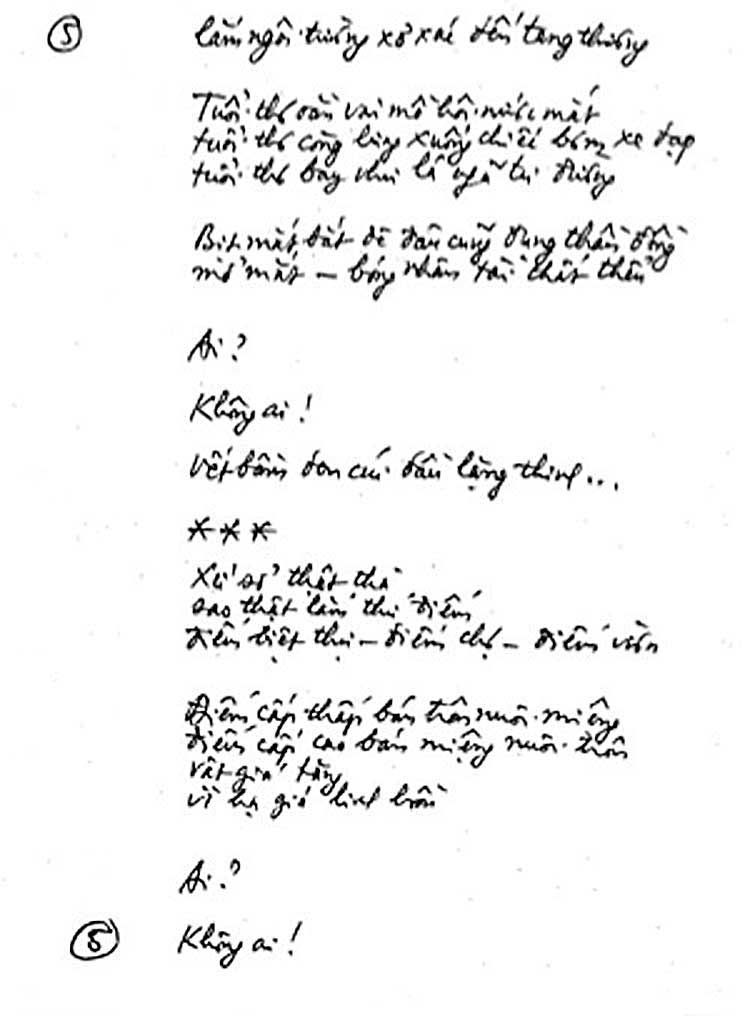 ⑤
lắm ngôi trường xơ xác đến tang thương
Tuổi thơ oằn vai mồ hôi nước mắt
tuổi thơ còng lưng xuống chiếc bơm xe đạp
tuổi thơ bay như lá ngã tư đường
Bịt mắt bắt dê đâu cũng đụng thần đồng
mở mắt – bóng nhân tài thất thểu
Ai?
Không ai!
Vết bầm đen cúi đầu lặng thinh...
***
Xứ sở thật thà
sao thật lắm thứ điếm
điếm biệt thự – điếm chợ – điếm vườn
Điếm cấp thấp bán trôn nuôi miệng
điếm cấp cao bán miệng nuôi trôn
vật giá tăng
vì hạ giá linh hồn
Ai?
Không ai!
⑤